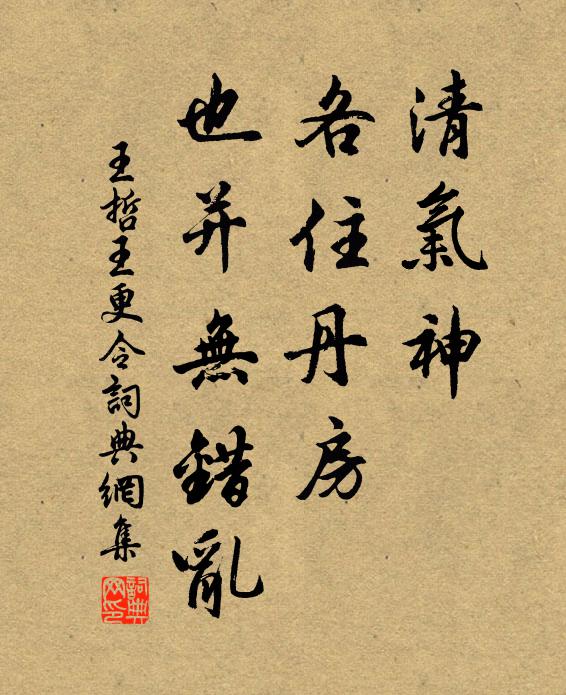 清氣神
各住丹房
也并無錯亂
王哲王更令詞典網集
詞典网印